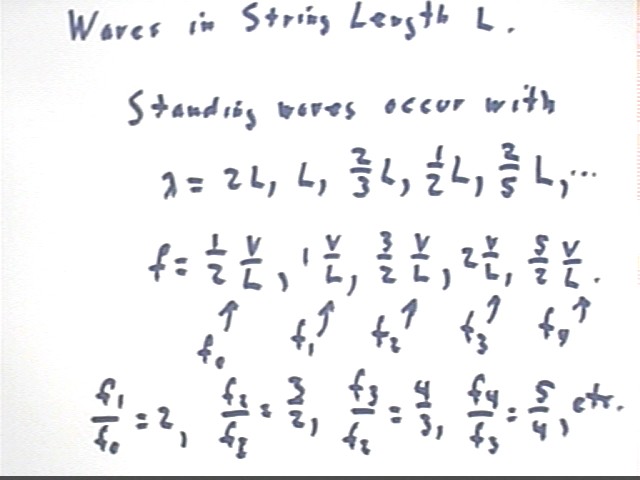 Waves in String Length L.
Standing waves occur with
λ = 2L, L, 2/3 L, 1/2 L, 2/5 L, ...
f = 1/2 V/L, 1 V/L, 3/2 V/L, 2 V/L, 5/2 V/L.
↑ ↑ ↑ ↑ ↑
f₀ f₁ f₂ f₃ f₄
f₁/f₀ = 2, f₂/f₁ = 3/2, f₃/f₂ = 4/3, f₄/f₃ = 5/4, etc.